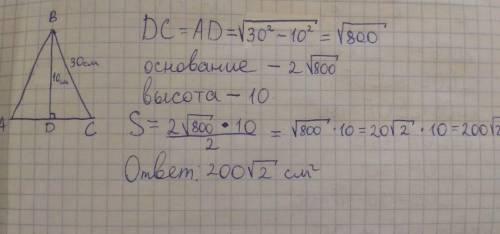 B
30см
10см
A
D
C
DC = AD = √30² − 10² = √800
основание − 2√800
высота − 10
S = 2√800 • 10 / 2 = √800 · 10 = 20√2 · 10 = 200√2
Ответ: 200√2 см²